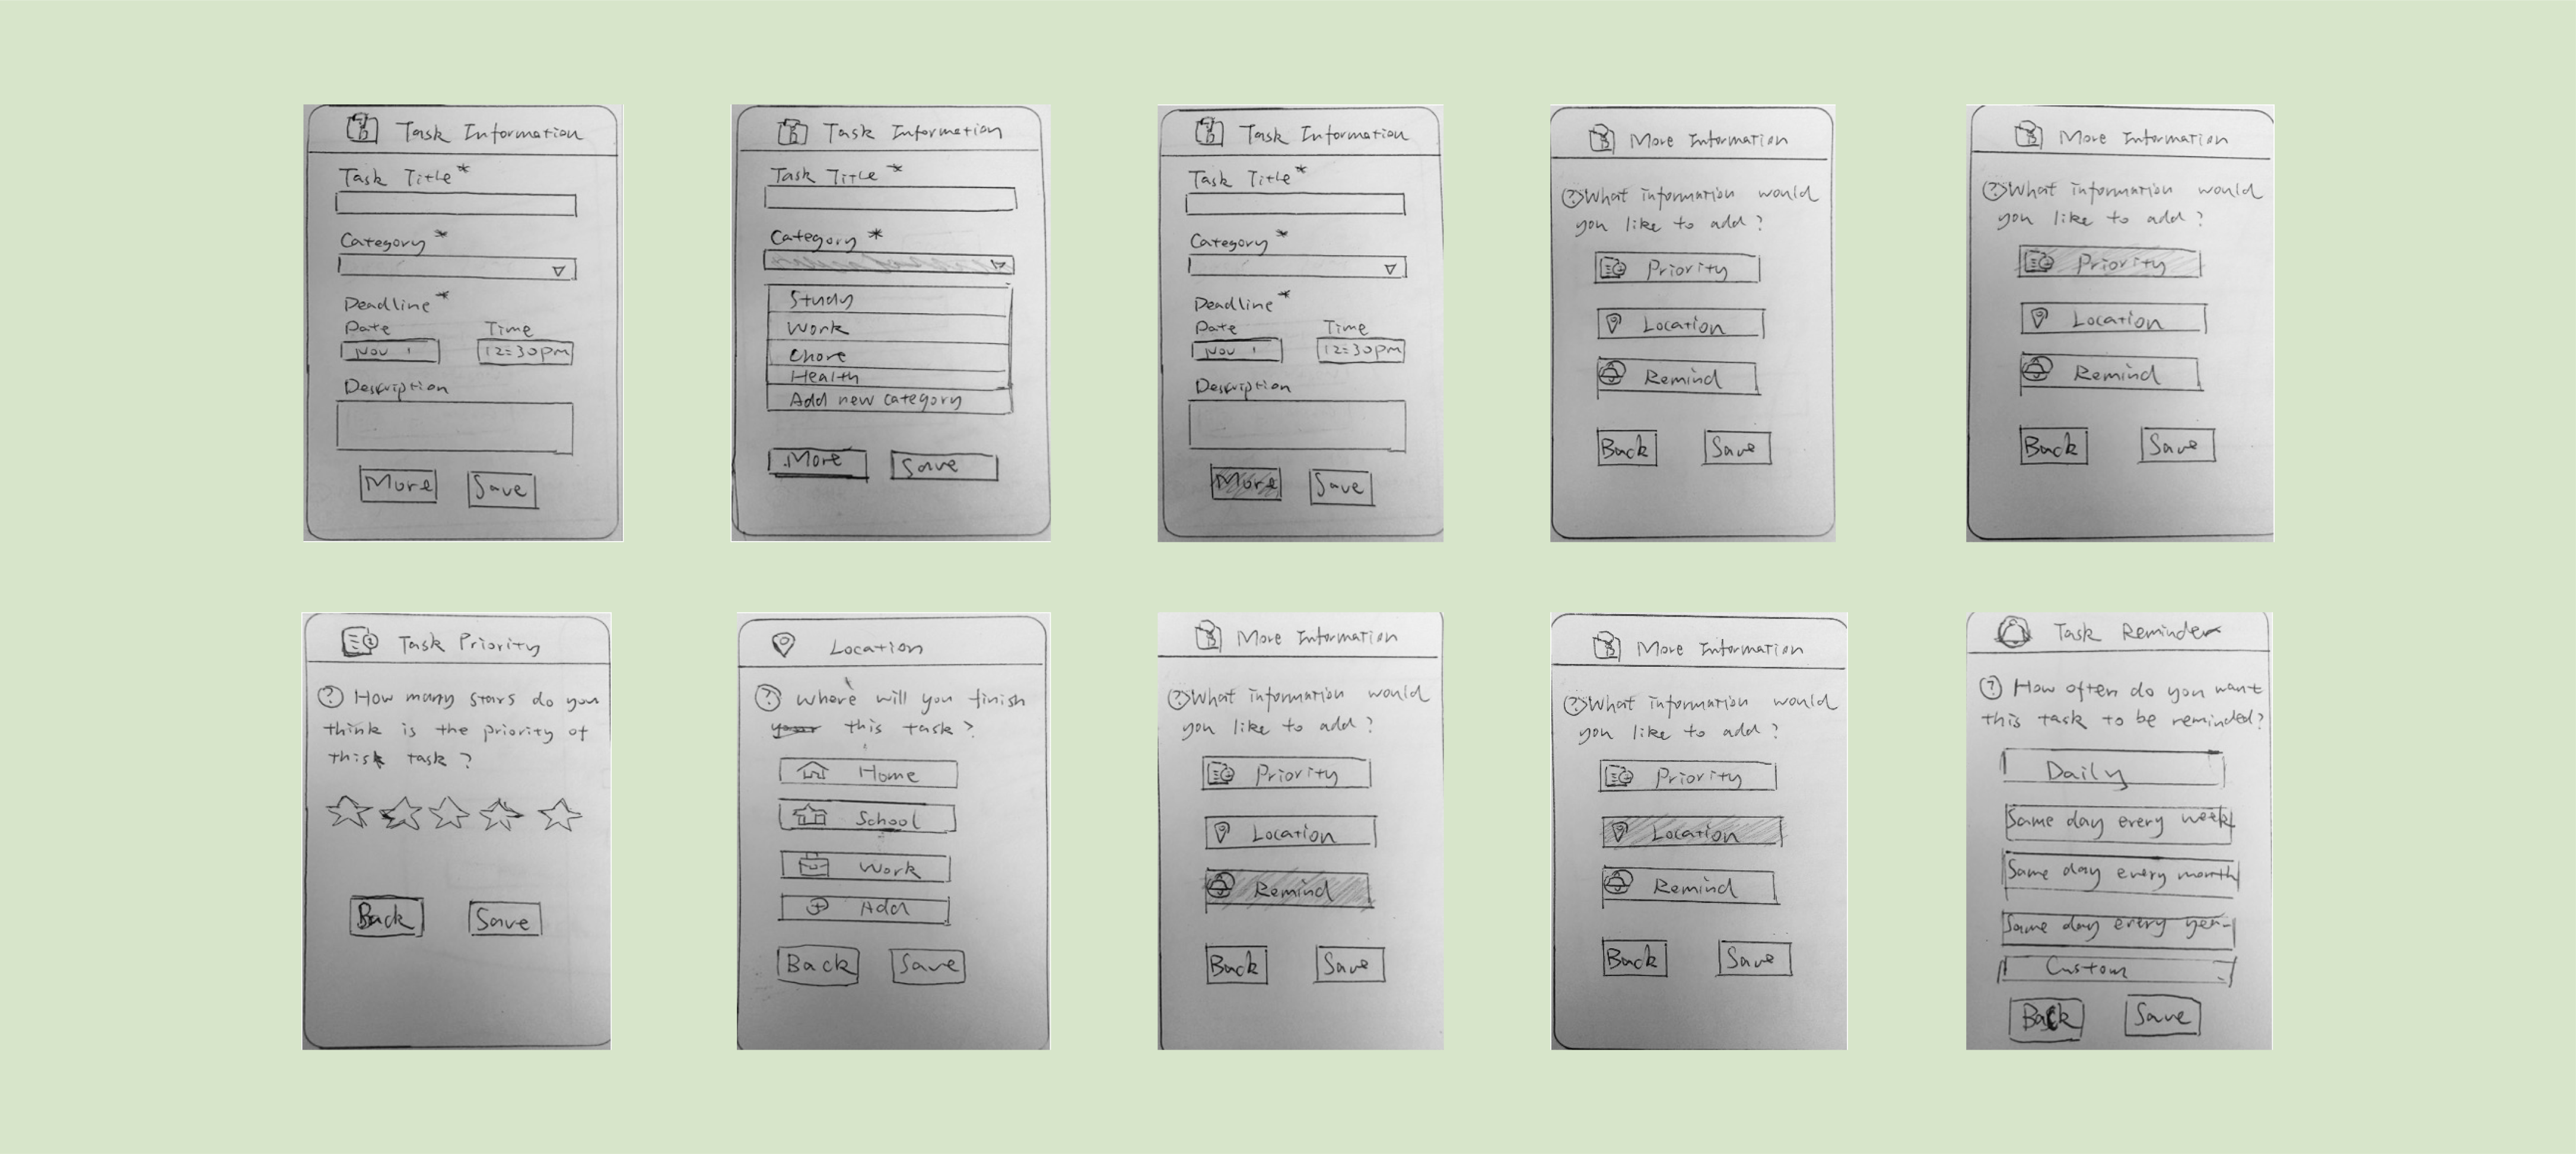 Task Information
Task Title*
Category*
Deadline*
Date Time
Nov 1 12:30pm
Description
More Save
Task Information
Task Title*
Category*
Study
Work
Chore
Health
Add new category
More Save
Task Information
Task Title*
Category*
Deadline*
Date Time
Nov 1 12:30pm
Description
More Save
More Information
? What information would
you like to add?
Priority
Location
Remind
Back Save
More Information
? What information would
you like to add?
Priority
Location
Remind
Back Save
Task Priority
? How many stars do you
think is the priority of
this task?
Back Save
Location
? Where will you finish
this task?
Home
School
Work
Add
Back Save
More Information
? What information would
you like to add?
Priority
Location
Remind
Back Save
More Information
? What information would
you like to add?
Priority
Location
Remind
Back Save
Task Reminder
? How often do you want
this task to be reminded?
Daily
Same day every week
Same day every month
Same day every year
Custom
Back Save